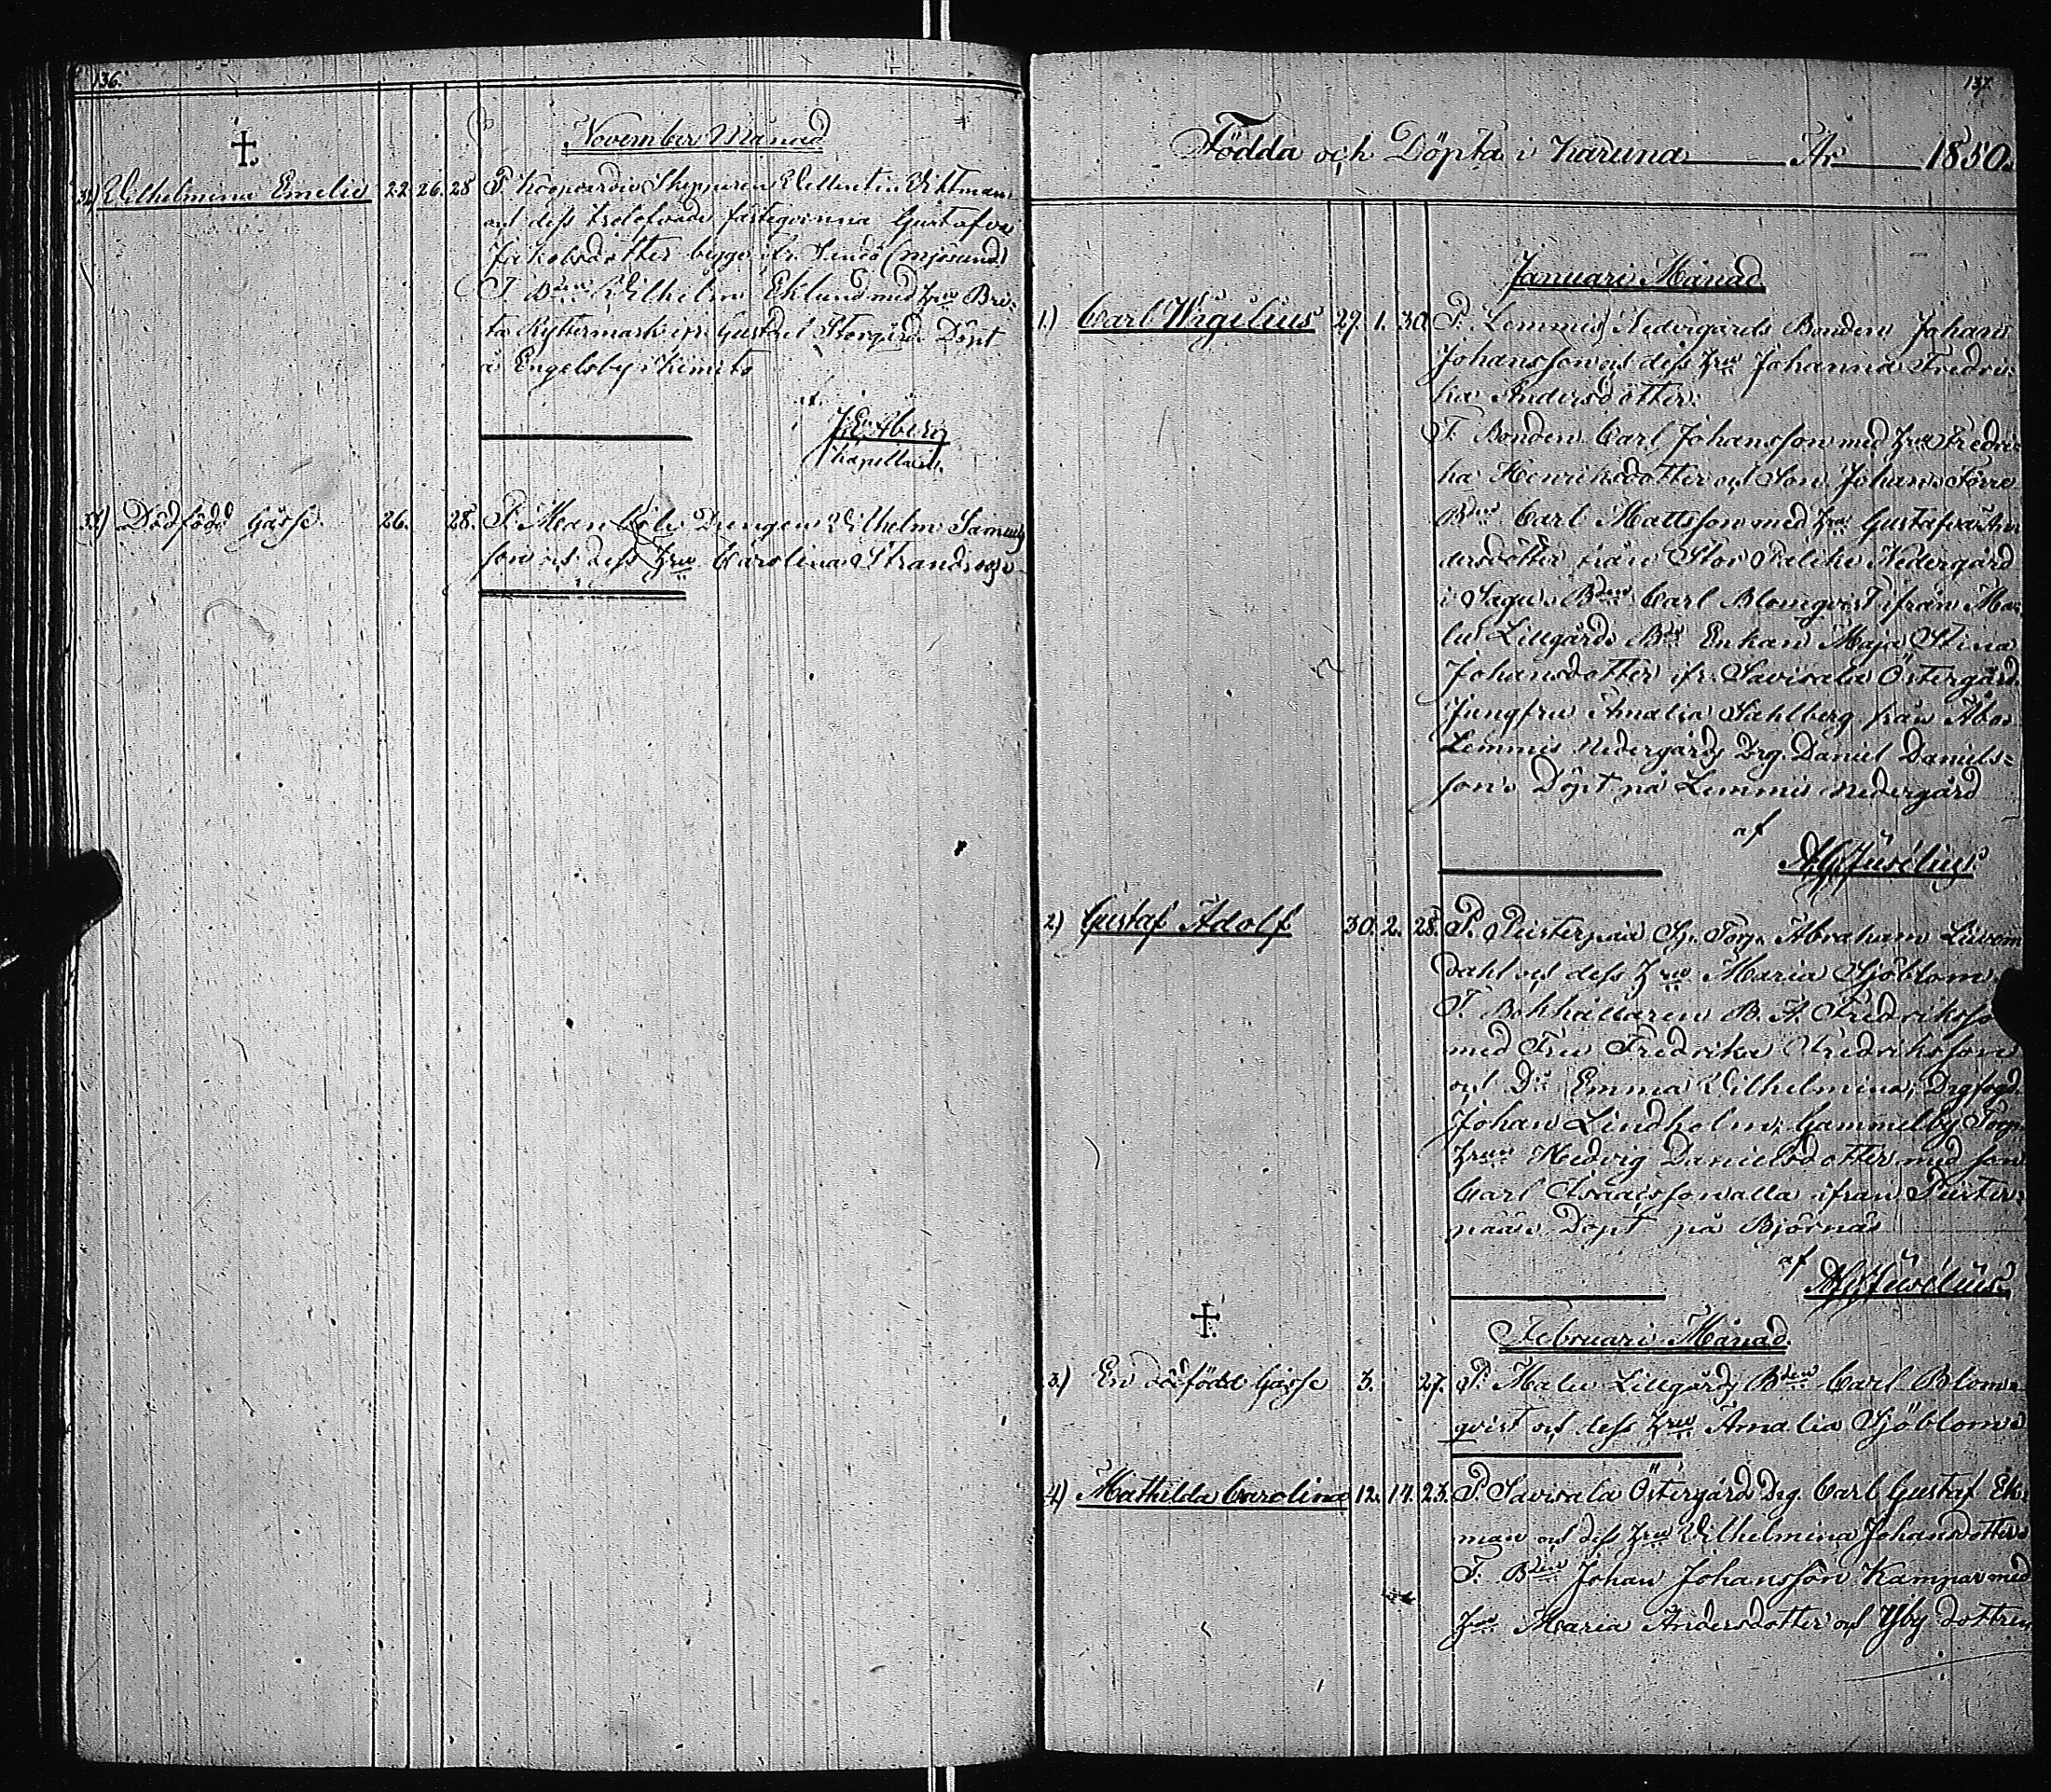 136.
November Månad
32) Wilhelmina Emelie 22. 26. 28 P. Koopvardie Skepparen Wittman
och dess trolofvade fästeqvinna Gustafva
Jakobsdotter begge ifr. (Mjösund)
T. Bden Wilhelm Eklund med hru Bri-
ta Ryttermark ifr. Storgård. Döpt
å Engelsby i Kimito
af
J. E. Åberg
Kapellan.
33) Dödfödd Gåsse. 26. 28. P. Drengen Wilhelm Samuels
son och dess hru Carolina Strandroos
137.
Födda och Döpta i Karuna År 1850.
Januari Månad
1.) Carl Wirgilius 29. 1. 30. P. Lemmis Nedergårds Bonden Johan
Johansson och dess hru Johanna Fredri-
ka Andersdotter.
T. Bonden Carl Johansson med hru Fredri-
ka Henriksdotter och Son Johan
Bden Carl Mattsson med hru Gustafva An-
dersdotter från Stor Nedergård
i Sagu. Bden Carl Blomqvist ifrån Ma-
lu Lillgård. Bde Enkan Maja Stina
Johansdotter ifr. Savisala Östergård.
Jungfru Amalia Sahlberg från Åbo.
Lemmis Nedergårds Drg. Daniel Daniels-
son. Döpt på Lemmis Nedergård
af
2) Gustaf Adolf 30. 2. 28. P. Abraham
dahl och dess hru Maria Sjöblom.
T. Bokhållaren B. A. Fredriksso
med Fru Fredrika Fredriksson
och Dr Emma Wilhelmina, Drgfogd.
Johan Lindholm, Gammelby Torp.
hrun Hedvig Danielsdotter med son
Carl Isaacsson alla ifrån
pää. Döpt på Björnäs
af
Februari Månad.
3.) En dödfödd Gåsse 3. 27. P. Malu Lillgårds Bden Carl Blom-
qvist och dess hru Amalia Sjöblom
4) Mathilda Carolina 12. 14. 23. P. Savisala Östergårds Drg. Carl Gustaf Ek-
man och dess hru Wilhelmina Johansdotter
T. Bden Johan Johansson Kampar med
hru Maria Andersdotter och Yby dottren